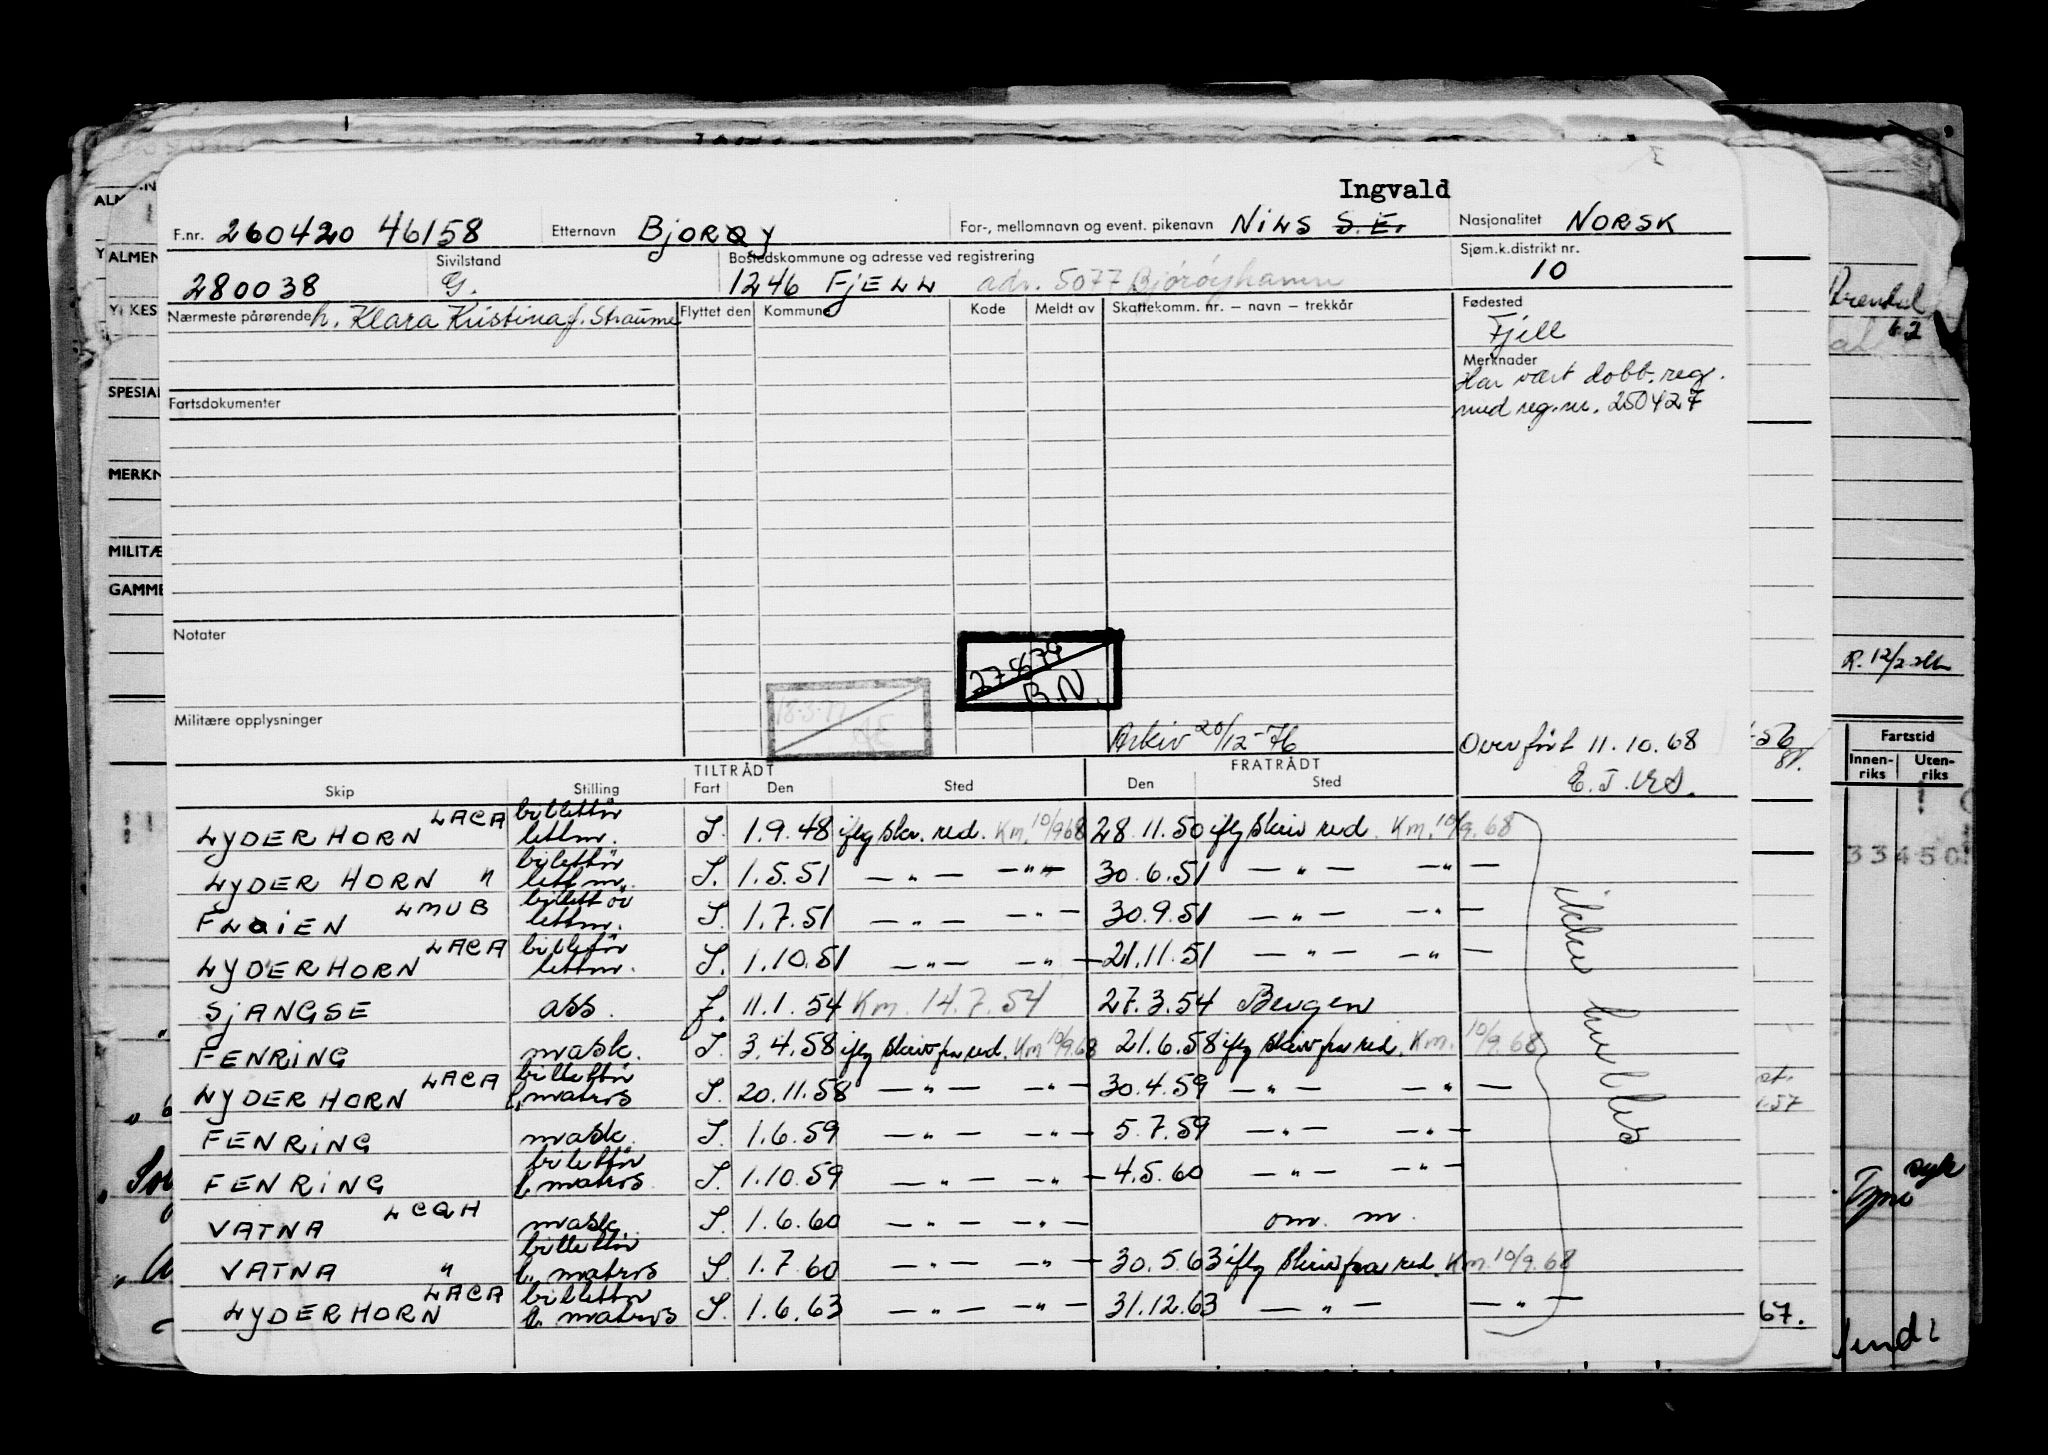 Ingvald
F.nr. 260420 46158 Etternavn BJORØY For-, mellomnavn og event. pikenavn NILS S.E. Nasjonalitet NORSK
280038 Sivilstand G. Bostedskommune og adresse ved registrering 1246 FJELL adr. 5077 Bjørøyhamn Sjøm.k.distrikt nr. 10
Nærmeste pårørende h. Klara Kristina f. Straume Flyttet den Kommune Kode Meldt av Skattekomm. nr. – navn – trekkår Fødested
Fjell
Merknader
Har vært dobb. reg.
med reg.nr. 250427
Fartsdokumenter
Notater
27 8 79
B.N.
18.3.77
Militære opplysninger
Arkiv 20/12-76
Overført 11.10.68
TILTRÅDT FRATRÅDT
Skip Stilling Fart Den Sted Den Sted
LYDERHORN LACA billettør lettm. I. 1.9.48 iflg skr. red. Km. 10/9 68 28.11.50 iflg skriv red. Km. 10/9.68
LYDER HORN " billettør lettm. I. 1.5.51 — " — — " — 30.6.51 — " — — " —
FLØIEN LMUB billettør lettm. I. 1.7.51 — " — — " — 30.9.51 — " — — " —
LYDERHORN LACA billettør lettm. I. 1.10.51 — " — — " — 21.11.51 — " — — " —
SJANGSE ass. f. 11.1.54 Km. 14.7.54 27.3.54 Bergen
FENRING mask. I. 3.4.58 iflg skriv fra red. Km 10/9.68 21.6.58 iflg skriv fra red. Km. 10/9.68
LYDERHORN LACA billettør l. matros I. 20.11.58 — " — — " — 30.4.59 — " — — " —
FENRING mask. I. 1.6.59 — " — — " — 5.7.59 — " — — " —
FENRING billettør l. matros I. 1.10.59 — " — — " — 4.5.60 — " — — " —
VATNA LCQH mask I. 1.6.60 — " — — " — om. m.
VATNA " billettør l. matros I. 1.7.60 — " — — " — 30.5.63 iflg skriv fra red. Km. 10/9.68
LYDERHORN LACA billettør l. matros I. 1.6.63 — " — — " — 31.12.63 — " — — " —
ALMEN
YRKES
SPESIAL
MERKN
MILITÆ
GAMME
Arendal
R. 12/2
Fartstid
Innen-riks Uten-riks
33450
67.